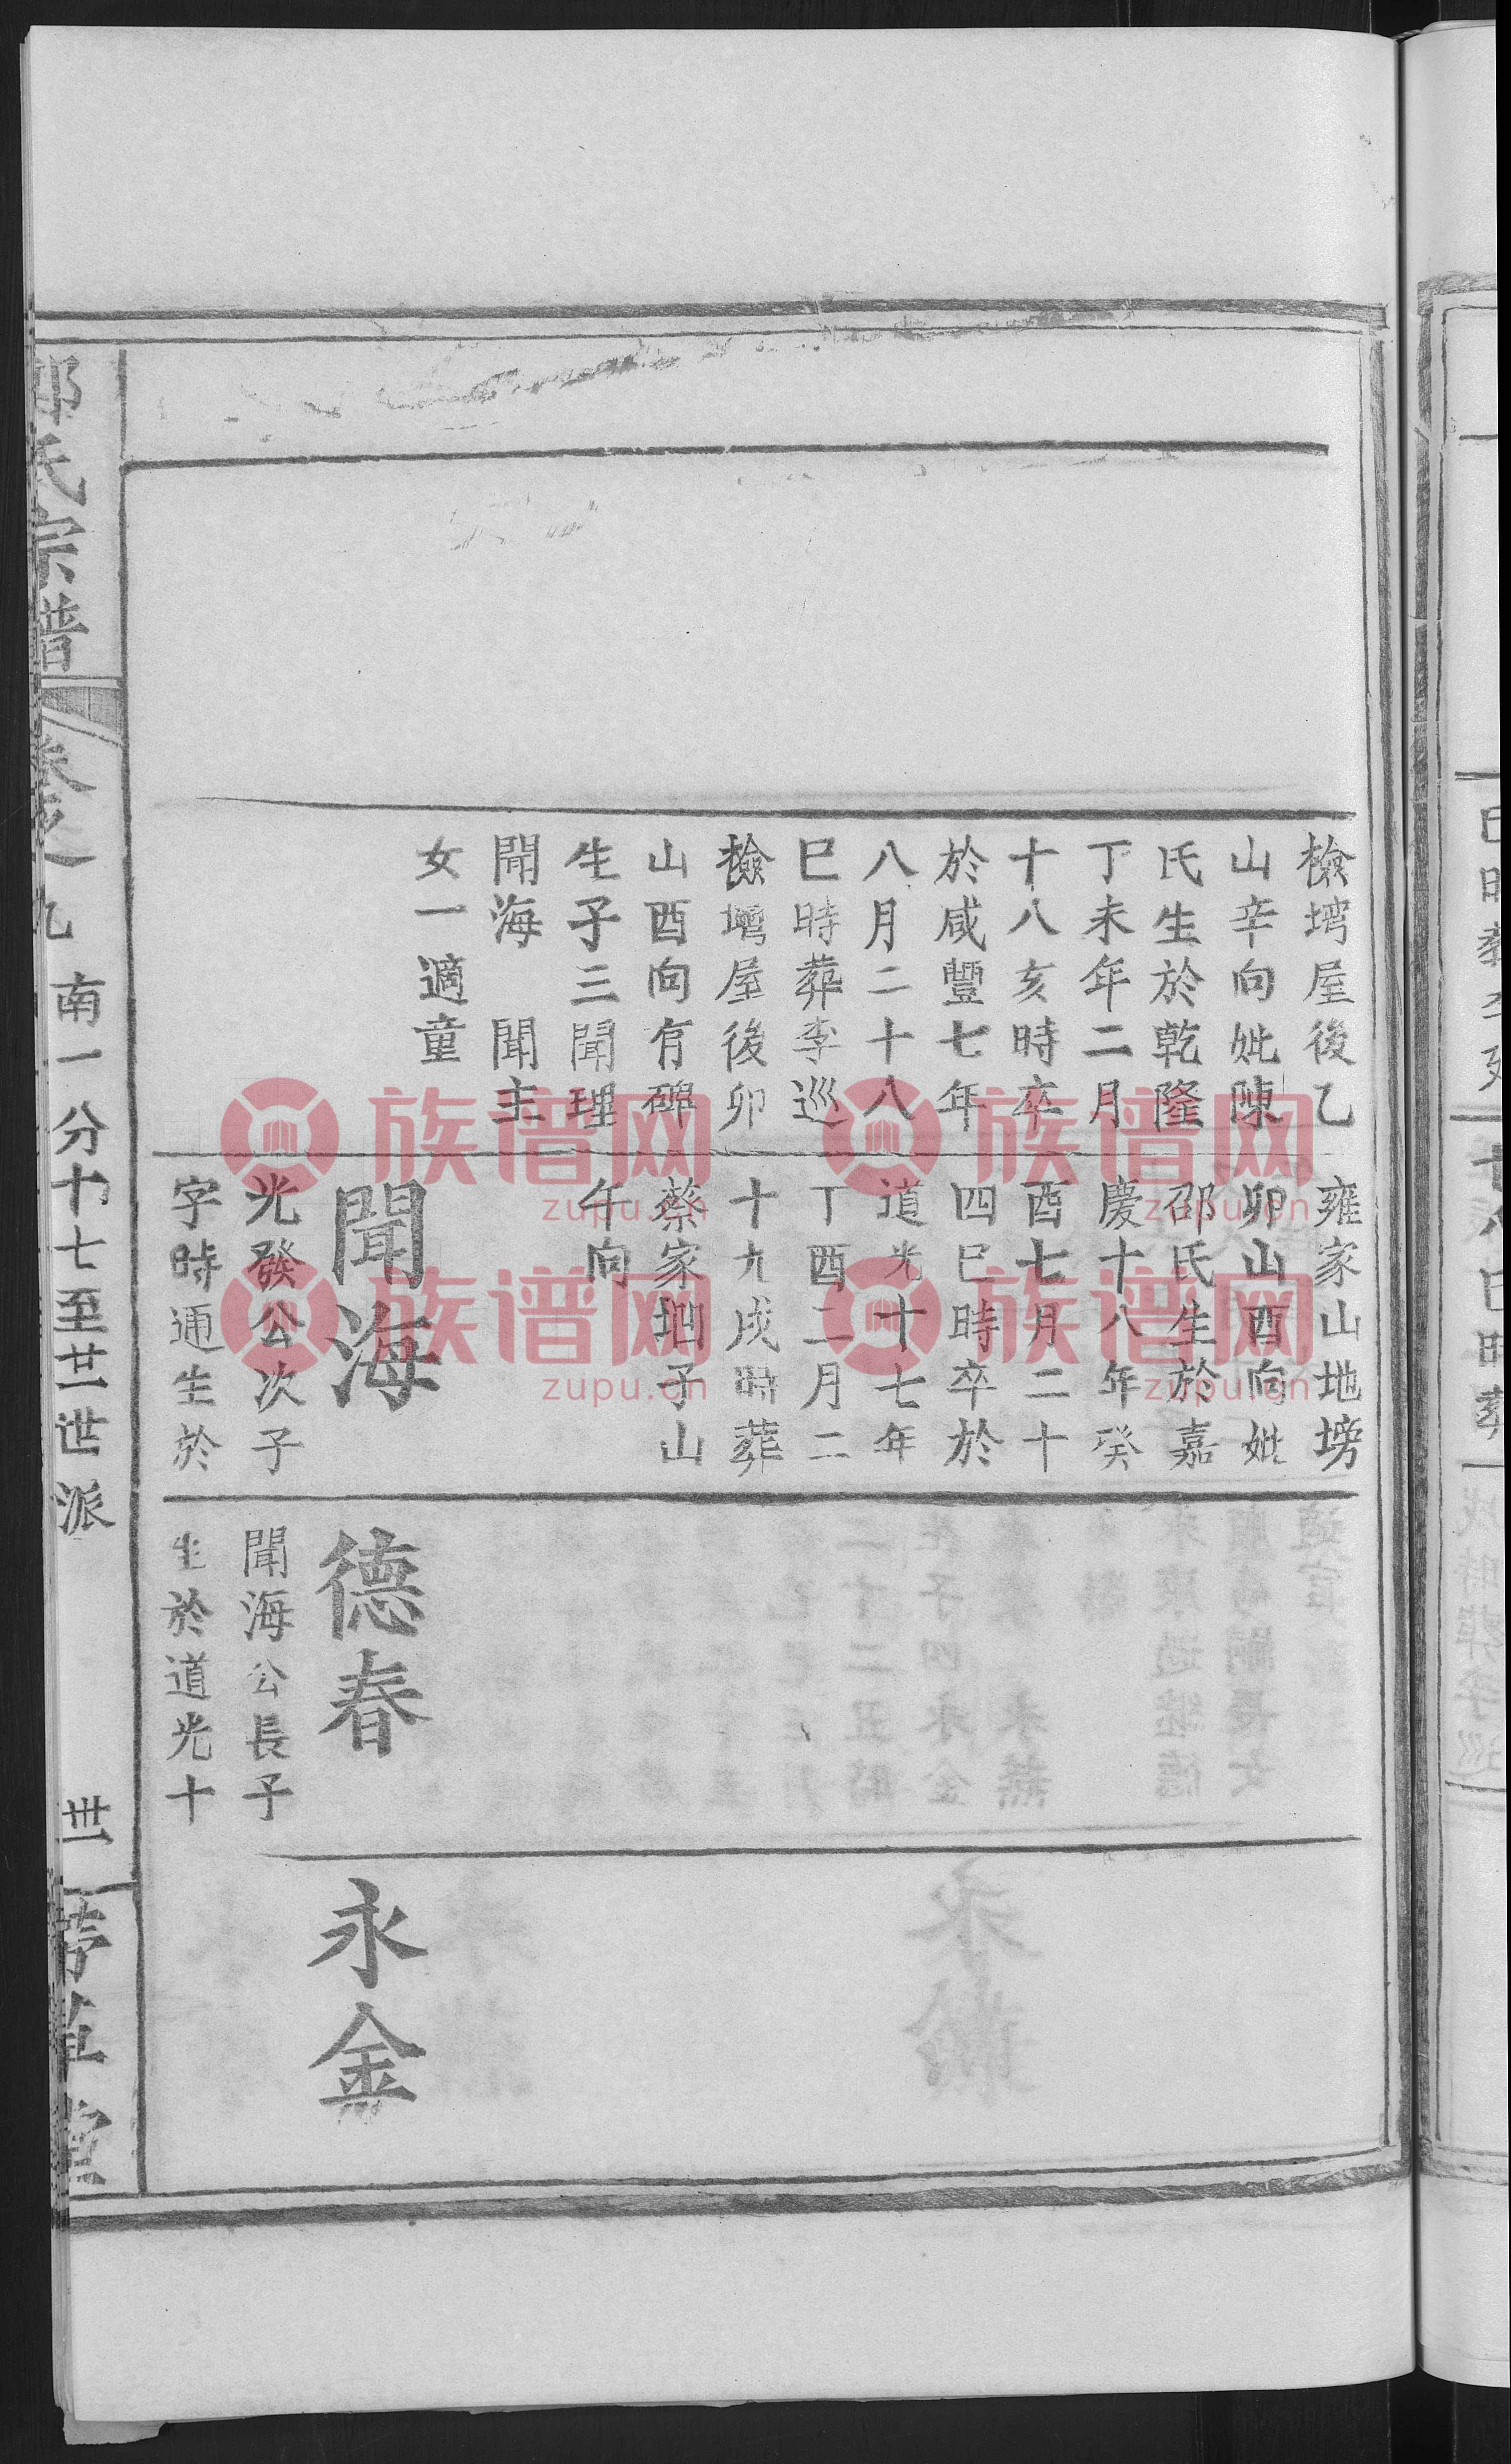 檢塆屋後乙
山辛向妣陳
氏生於乾隆
丁未年二月
十八亥時卒
於咸豐七年
八月二十八
巳時葬李巡
檢塆屋後卯
山酉向有碑
生子三聞理
聞海 聞主
女一適童
雍家山地塝
卯山酉向妣
邵氏生於嘉
慶十八年癸
酉七月二十
四巳時卒於
道光十七年
丁酉二月二
十九戌時葬
蔡家坦子山
午向
聞海
光發公次子
字時通生於
德春
聞海公長子
生於道光十
永金
氏宗譜
卷之九 南一分十七至廿一世派
卅一
草堂
族谱网
zupu.cn
族谱网
zupu.cn
族谱网
zupu.cn
族谱网
zupu.cn